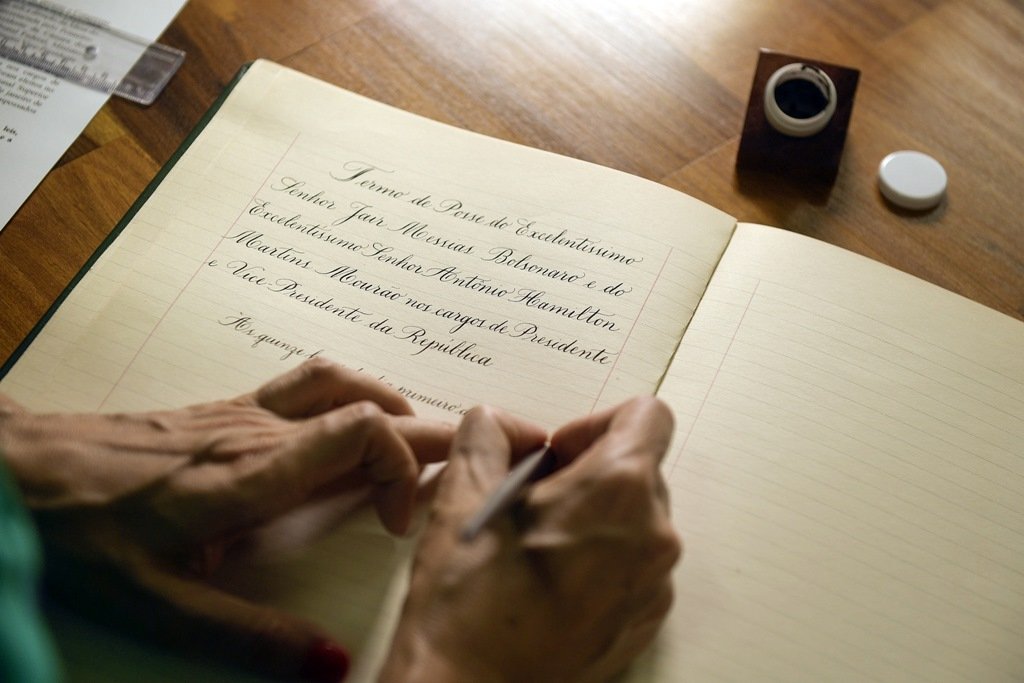 Termo de Posse do Excelentíssimo
Senhor Jair Messias Bolsonaro e do
Excelentíssimo Senhor Antônio Hamilton
Martins Mourão nos cargos de Presidente
e Vice-Presidente da República
As quinze
primeiro